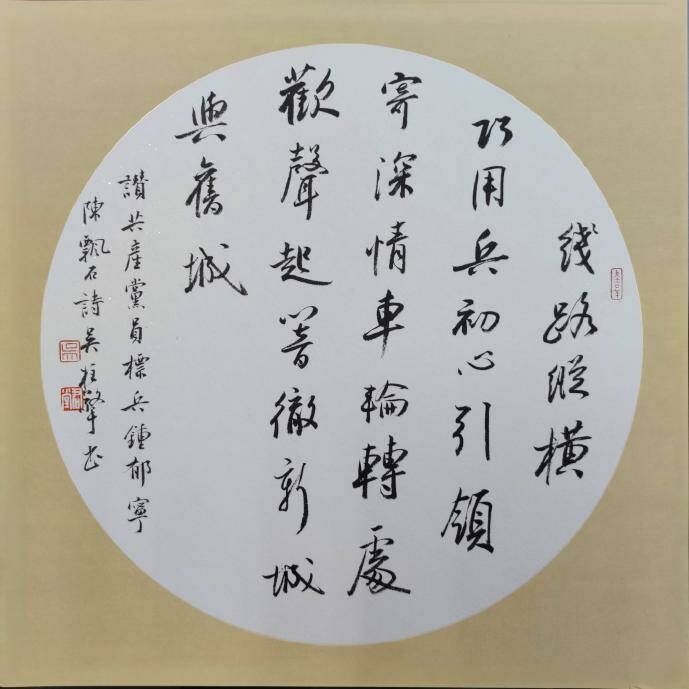 线路縱橫
巧用兵初心引領
寄深情車輪轉處
歡聲起響徹新城
與舊城
讃共產黨員標兵鍾郁寧
陳飄石詩吴柱擎书